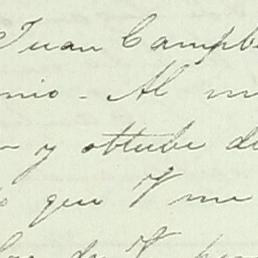 Juan Campb
nio - Al m
y obtube de
que Y me
de Y